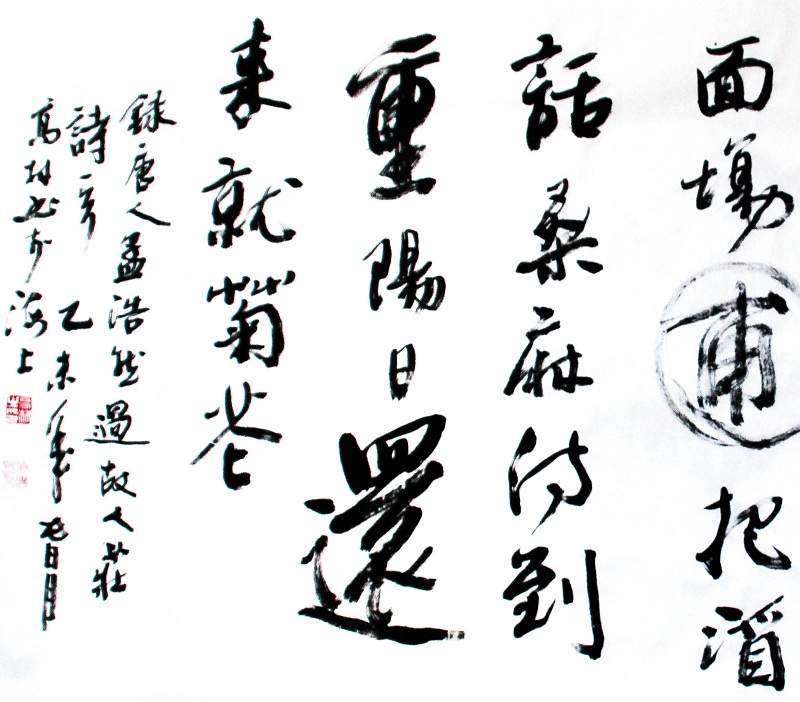 面場圃把酒
話桑麻待到
重陽日還
来就菊花
録唐人孟浩然過故人莊
詩一首 乙未年
高 书於海上